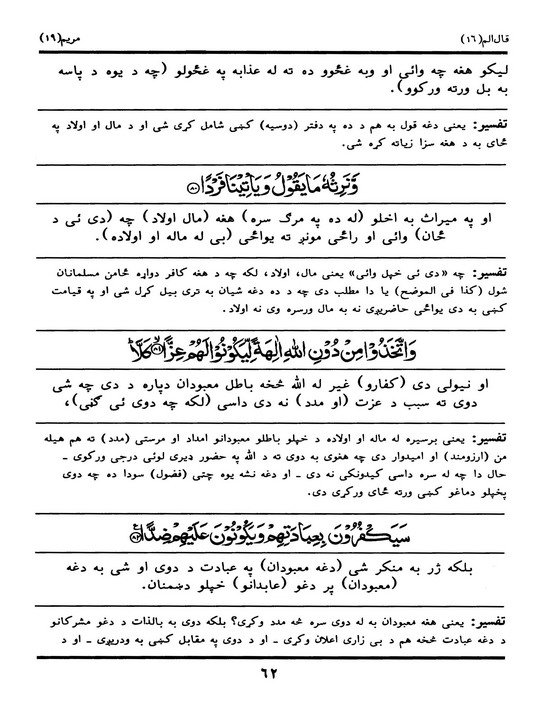 قال الم(١٦)
مریم(١٩)
لیکو هغه چه وائی او وبه غځوو ده ته له عذابه په غځولو (چه د یوه د پاسه
به بل ورته ورکوو).
تفسیر: یعنی دغه قول به هم د ده په دفتر (دوسیه) کښی شامل کړی شی او د مال او اولاد په
ځای به د هغه سزا زیاته کړه شی.
وَّنَرِثُهٗ مَا يَقُوْلُ وَيَاْتِيْنَا فَرْدًا ﴿٨٠﴾
او په میراث به اخلو (له ده په مرګ سره) هغه (مال اولاد) چه (دی ئی د
ځان) وائی او راځی مونږ ته یواځی (بی له ماله او اولاده).
تفسیر: چه «دی ئی خپل وائی» یعنی مال، اولاد، لکه چه د هغه کافر دواړه ځامن مسلمانان
شول (کذا فی الموضح) یا دا مطلب دی چه د ده دغه شیان به تری بیل کړل شی او په قیامت
کښی به دی یواځی حاضریږی نه به مال ورسره وی نه اولاد.
وَاتَّخَذُوْا مِنْ دُوْنِ اللّٰهِ اٰلِهَةً لِّيَكُوْنُوْا لَهُمْ عِزًّا ﴿٨١﴾ كَلَّا
او نیولی دی (کفارو) غیر له الله څخه باطل معبودان دپاره د دی چه شی
دوی ته سبب د عزت (او مدد) نه دی داسی (لکه چه دوی ئی ګڼی)،
تفسیر: یعنی برسیره له ماله او اولاده د خپلو باطلو معبودانو امداد او مرستی (مدد) ته هم هیله
من (ارزومند) او امیدوار دی چه هغوی به دوی ته د الله په حضور ډیری لوئی درجی ورکوی ـ
حال دا چه له سره داسی کیدونکی نه دی ـ او دغه نشه یوه چتی (فضول) سودا ده چه دوی
پخپلو دماغو کښی ورته ځای ورکړی دی.
سَيَكْفُرُوْنَ بِعِبَادَتِهِمْ وَيَكُوْنُوْنَ عَلَيْهِمْ ضِدًّا ﴿٨٢﴾
بلکه ژر به منکر شی (دغه معبودان) په عبادت د دوی او شی به دغه
(معبودان) پر دغو (عابدانو) خپلو دښمنان.
تفسیر: یعنی هغه معبودان به له دوی سره څه مدد وکړی؟ بلکه دوی به بالذات د دغو مشرکانو
د دغه عبادت څخه هم د بی زاری اعلان وکړی ـ او د دوی په مقابل کښی به ودریږی ـ او د
٦٢